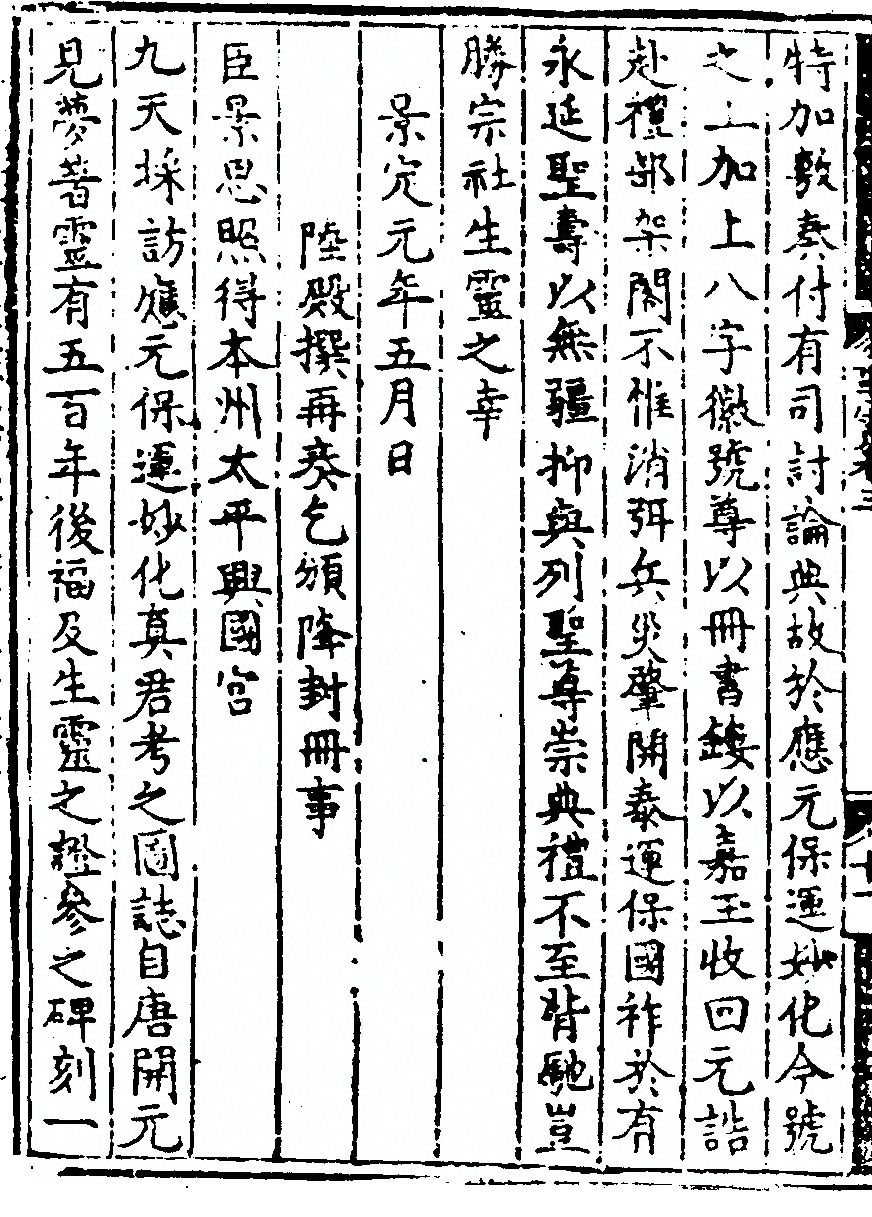 特加敷奏付有司討論典故於應元保運妙化今號
之上加上八字徽號尊以冊書鏤以嘉玉收回元誥
赴禮部架閣不惟消弭兵災肇開泰運保國祚於有
永延聖壽以無疆抑與列聖尊崇典禮不至背馳豈
勝宗社生靈之幸
景定元年五月日
陸殿撰再奏乞頒降封冊事
臣景思照得本州太平興國宮
九天採訪應元保運妙化真君考之圖誌自唐開元
見夢著靈有五百年後福及生靈之證參之碑刻一